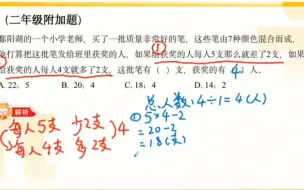 (二年级附加题)
鄱阳湖的一个小学老师，买了一批质量非常好的笔，这些笔由7种颜色混合而成，
打算把这批笔发给班里获奖的人，如果给获奖的人每人5支那么就差了2支，如
给获奖的人每人4支就多了2支。这批笔有（ ）支，获奖的有 4 人。
A. 22；5
B. 18；4
C. 20；3
D. 14；2
解析
总人数：4÷1=4(人)
每人5支 少2支 4
每人4支 多2支
① 5×4-2
=20-2
=18(支)